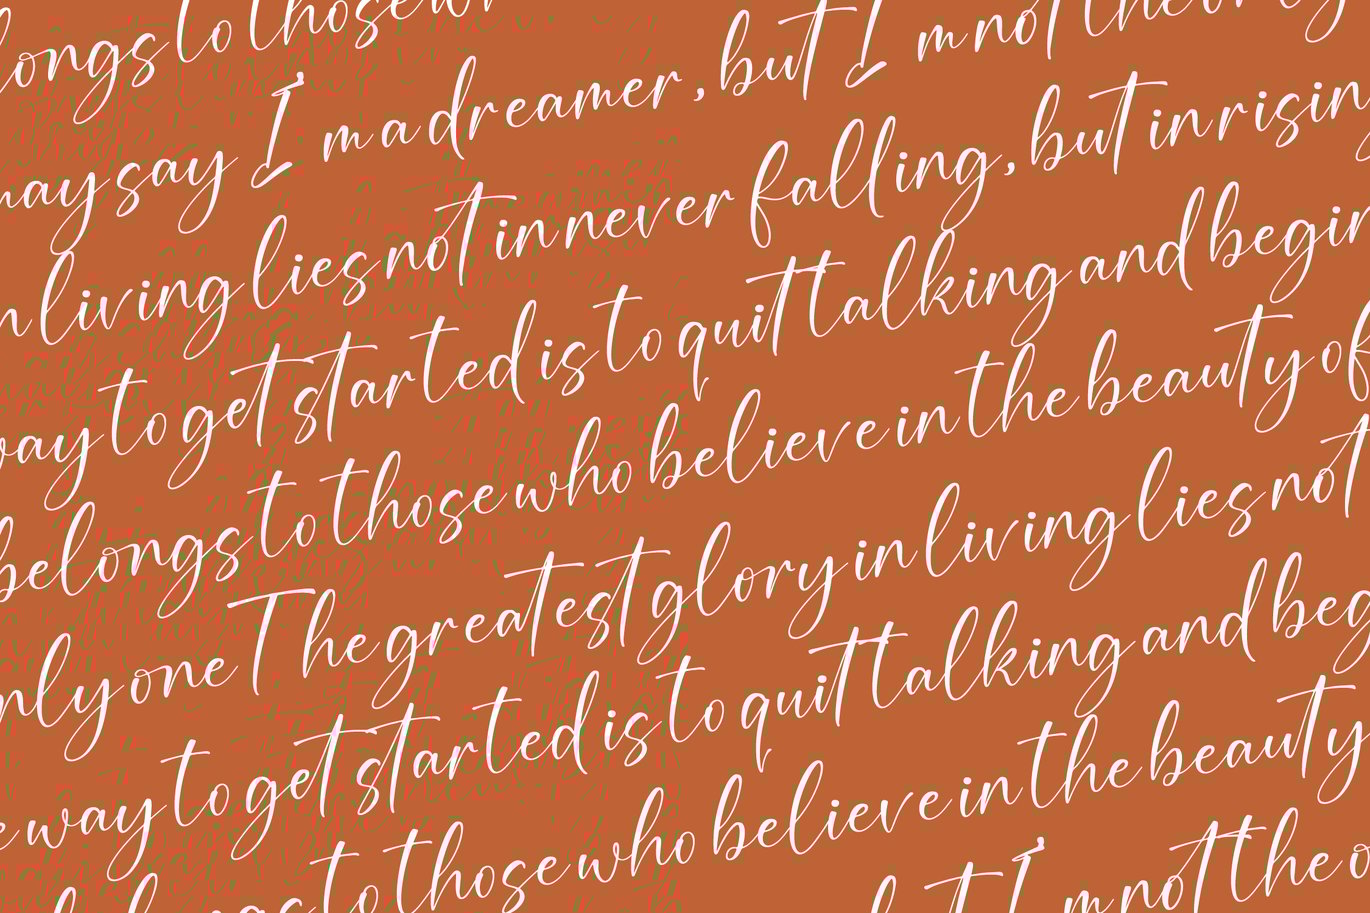 longs to those
may say I m a dreamer, but I m not the only
n living lies not in never falling, but in rising
way to get started is to quit talking and begin
belongs to those who believe in the beauty of
only one The greatest glory in living lies not
e way to get started is to quit talking and beg
belongs to those who believe in the beauty
but I m not the o